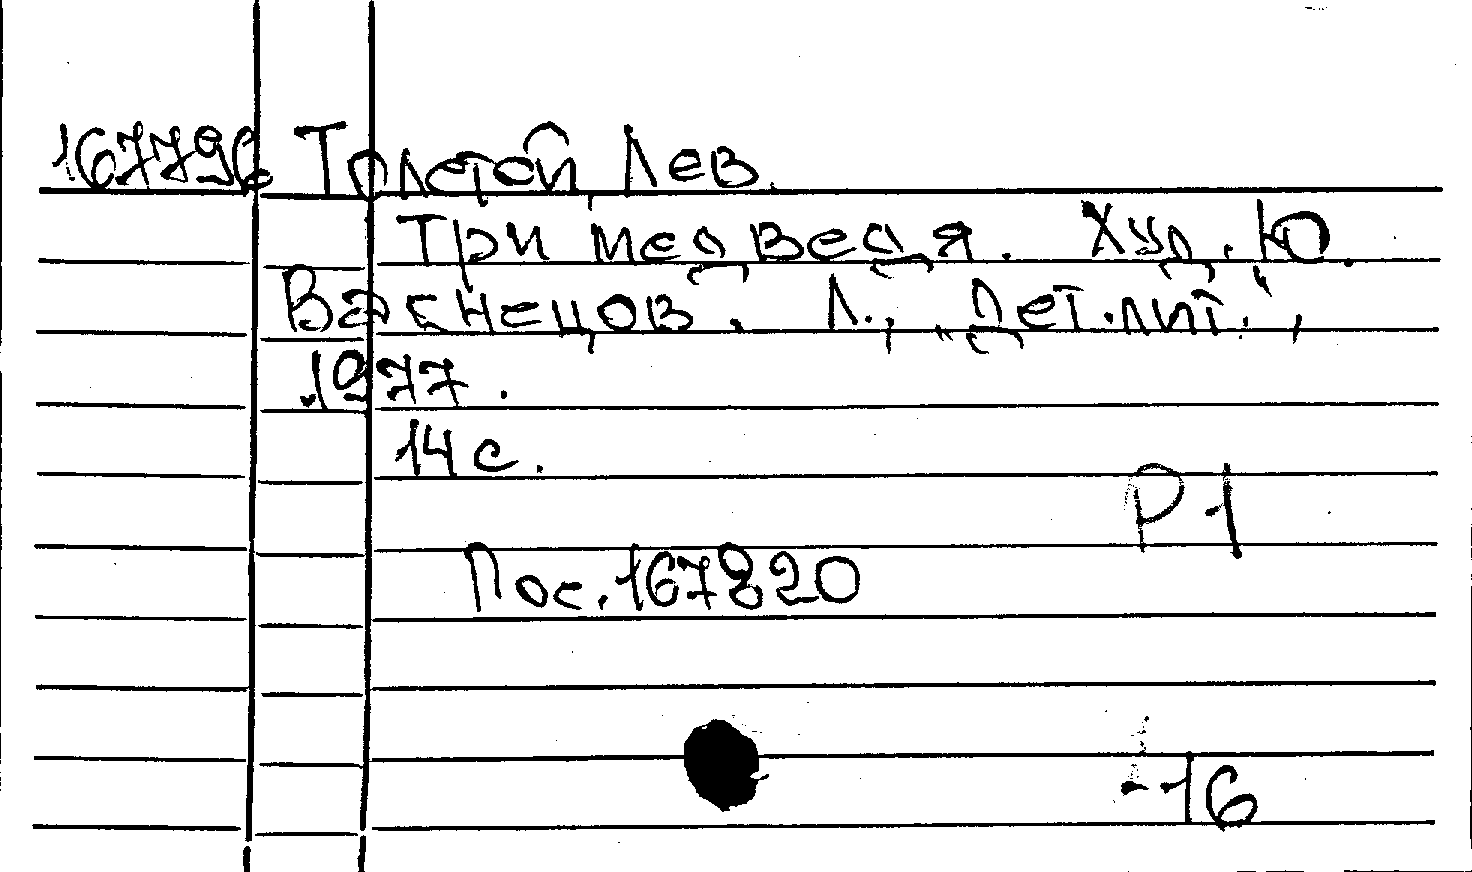 167796 Толстой, Лев.
Три медведя. Худ. Ю.
Васнецов. Л., „Дет. лит.",
1977.
14 с.
Р1
Пос. 167820
-16